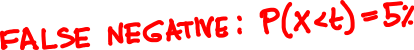 FALSE NEGATIVE: P(X<t)=5%